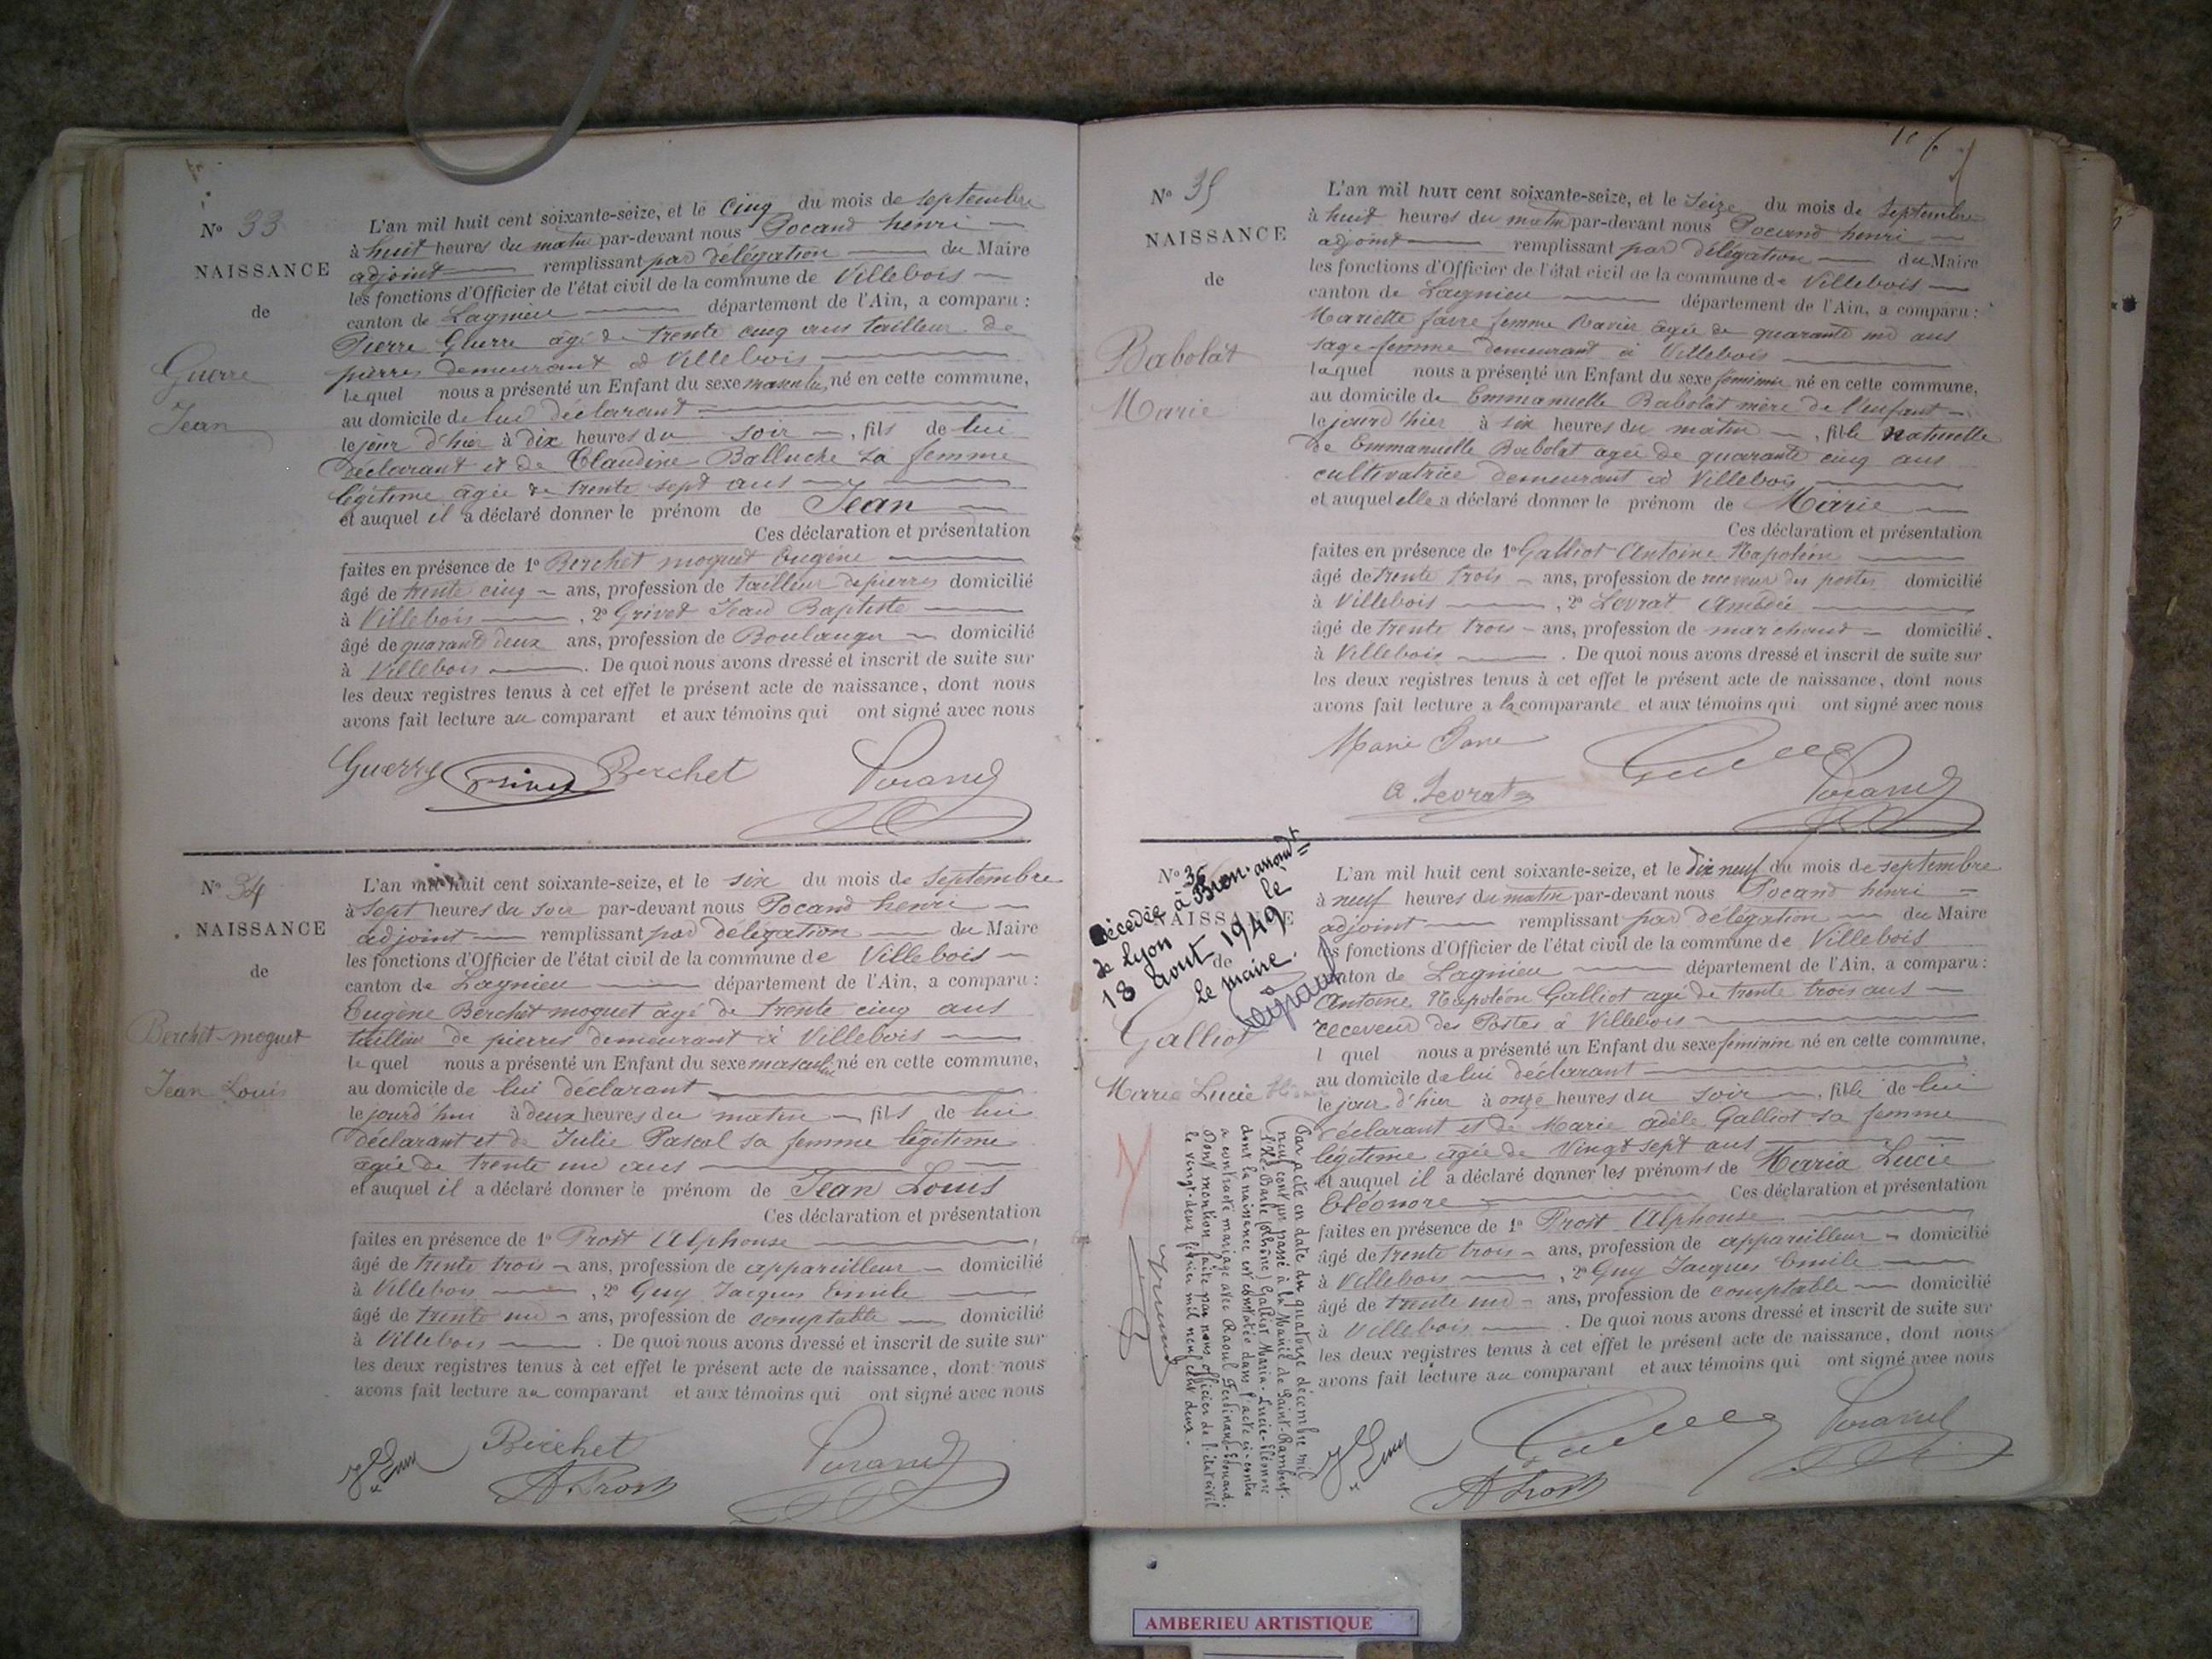 Nº 33
NAISSANCE
de
Guerre
Jean
L'an mil huit cent soixante-seize, et le Cinq du mois de septembre
à huit heures du matin par-devant nous Pocand henri
adjoint remplissant par délégation du Maire
les fonctions d'Officier de l'état civil de la commune de Villebois
canton de Lagnieu département de l'Ain, a comparu :
Pierre Guerre âgé de trente cinq ans tailleur de
pierres demeurant à Villebois
lequel nous a présenté un Enfant du sexe masculin, né en cette commune,
au domicile de lui déclarant
le jour d'hier à dix heures du soir , fils de lui
déclarant et de Claudine Balluche sa femme
légitime âgée de trente sept ans
et auquel il a déclaré donner le prénom de Jean
Ces déclaration et présentation
faites en présence de 1º Berchet moquet Eugène
âgé de trente cinq ans, profession de tailleur de pierres domicilié
à Villebois , 2º Grivet Jean Baptiste
âgé de quarante deux ans, profession de Boulanger domicilié
à Villebois . De quoi nous avons dressé et inscrit de suite sur
les deux registres tenus à cet effet le présent acte de naissance, dont nous
avons fait lecture au comparant et aux témoins qui ont signé avec nous
Guerre Grivet Berchet Pocand
Nº 34
NAISSANCE
de
Berchet-moquet
Jean Louis
L'an mil huit cent soixante-seize, et le six du mois de Septembre
à Sept heures du soir par-devant nous Pocand henri
adjoint remplissant par délégation du Maire
les fonctions d'Officier de l'état civil de la commune de Villebois
canton de Lagnieu département de l'Ain, a comparu :
Eugène Berchet moquet âgé de trente cinq ans
tailleur de pierres demeurant à Villebois
lequel nous a présenté un Enfant du sexe masculin né en cette commune,
au domicile de lui déclarant
le jourd'hui à deux heures du matin fils de lui
déclarant et de Julie Pascal sa femme légitime
âgée de trente un ans
et auquel il a déclaré donner le prénom de Jean Louis
Ces déclaration et présentation
faites en présence de 1º Prost Alphonse ,
âgé de trente trois ans, profession de appareilleur domicilié
à Villebois , 2º Guy Jacques Emile
âgé de trente un ans, profession de comptable domicilié
à Villebois . De quoi nous avons dressé et inscrit de suite sur
les deux registres tenus à cet effet le présent acte de naissance, dont nous
avons fait lecture au comparant et aux témoins qui ont signé avec nous
J Guy Berchet Pocand
A Prost
Nº 35
NAISSANCE
de
Babolat
Marie
L'an mil huit cent soixante-seize, et le Seize du mois de Septembre
à huit heures du matin par-devant nous Pocand henri
adjoint remplissant par délégation du Maire
les fonctions d'Officier de l'état civil de la commune de Villebois
canton de Lagnieu département de l'Ain, a comparu :
Mariette favre femme Ravier âgée de quarante un ans
sage-femme demeurant à Villebois
laquel nous a présenté un Enfant du sexe féminin né en cette commune,
au domicile de Emmanuelle Babolat mère de l'enfant
le jourd'hier à six heures du matin , fille naturelle
de Emmanuelle Babolat agée de quarante cinq ans
cultivatrice demeurant à Villebois
et auquel elle a déclaré donner le prénom de Marie
Ces déclaration et présentation
faites en présence de 1º Galliot Antoine Napoléon
âgé de trente trois ans, profession de receveur des postes domicilié
à Villebois , 2º Levrat Amédée
âgé de trente trois ans, profession de marchand domicilié
à Villebois . De quoi nous avons dressé et inscrit de suite sur
les deux registres tenus à cet effet le présent acte de naissance, dont nous
avons fait lecture a la comparante et aux témoins qui ont signé avec nous
A. Levrat Pocand
Nº 36
NAISSANCE
de
Décédée à Bron arrondt
de Lyon le
18 aout 1949
Le maire.
Galliot
Maria Lucie
L'an mil huit cent soixante-seize, et le dix neuf du mois de septembre
à neuf heures du matin par-devant nous Pocand henri
adjoint remplissant par délégation du Maire
les fonctions d'Officier de l'état civil de la commune de Villebois
canton de Lagnieu département de l'Ain, a comparu :
Antoine Napoléon Galliot agé de trente trois ans
receveur des Postes à Villebois
l quel nous a présenté un Enfant du sexe féminin né en cette commune,
au domicile de lui déclarant
le jour d'hier à onze heures du soir , fille de lui
déclarant et de Marie adèle Galliot sa femme
légitime âgée de Vingt sept ans
et auquel il a déclaré donner les prénoms de Maria Lucie
Eléonore Ces déclaration et présentation
faites en présence de 1º Prost Alphonse
âgé de trente trois ans, profession de appareilleur domicilié
à Villebois , 2º Guy Jacques Emile
âgé de trente un ans, profession de comptable domicilié
à Villebois . De quoi nous avons dressé et inscrit de suite sur
les deux registres tenus à cet effet le présent acte de naissance, dont nous
avons fait lecture au comparant et aux témoins qui ont signé avec nous
J Guy Pocand
A Prost
Par acte en date du quatorze décembre mil
neuf cent un passé à la Mairie de Saint-Rambert-
l'Ile-Barbe (Rhône) Galliot Maria-Lucie-Eléonore
dont la naissance est constatée dans l'acte ci-contre
a contracté mariage avec Raoul Ferdinand-Edouard.
Dont mention faite par nous officier de l'état civil
le vingt-deux février mil neuf cent deux.
AMBERIEU ARTISTIQUE